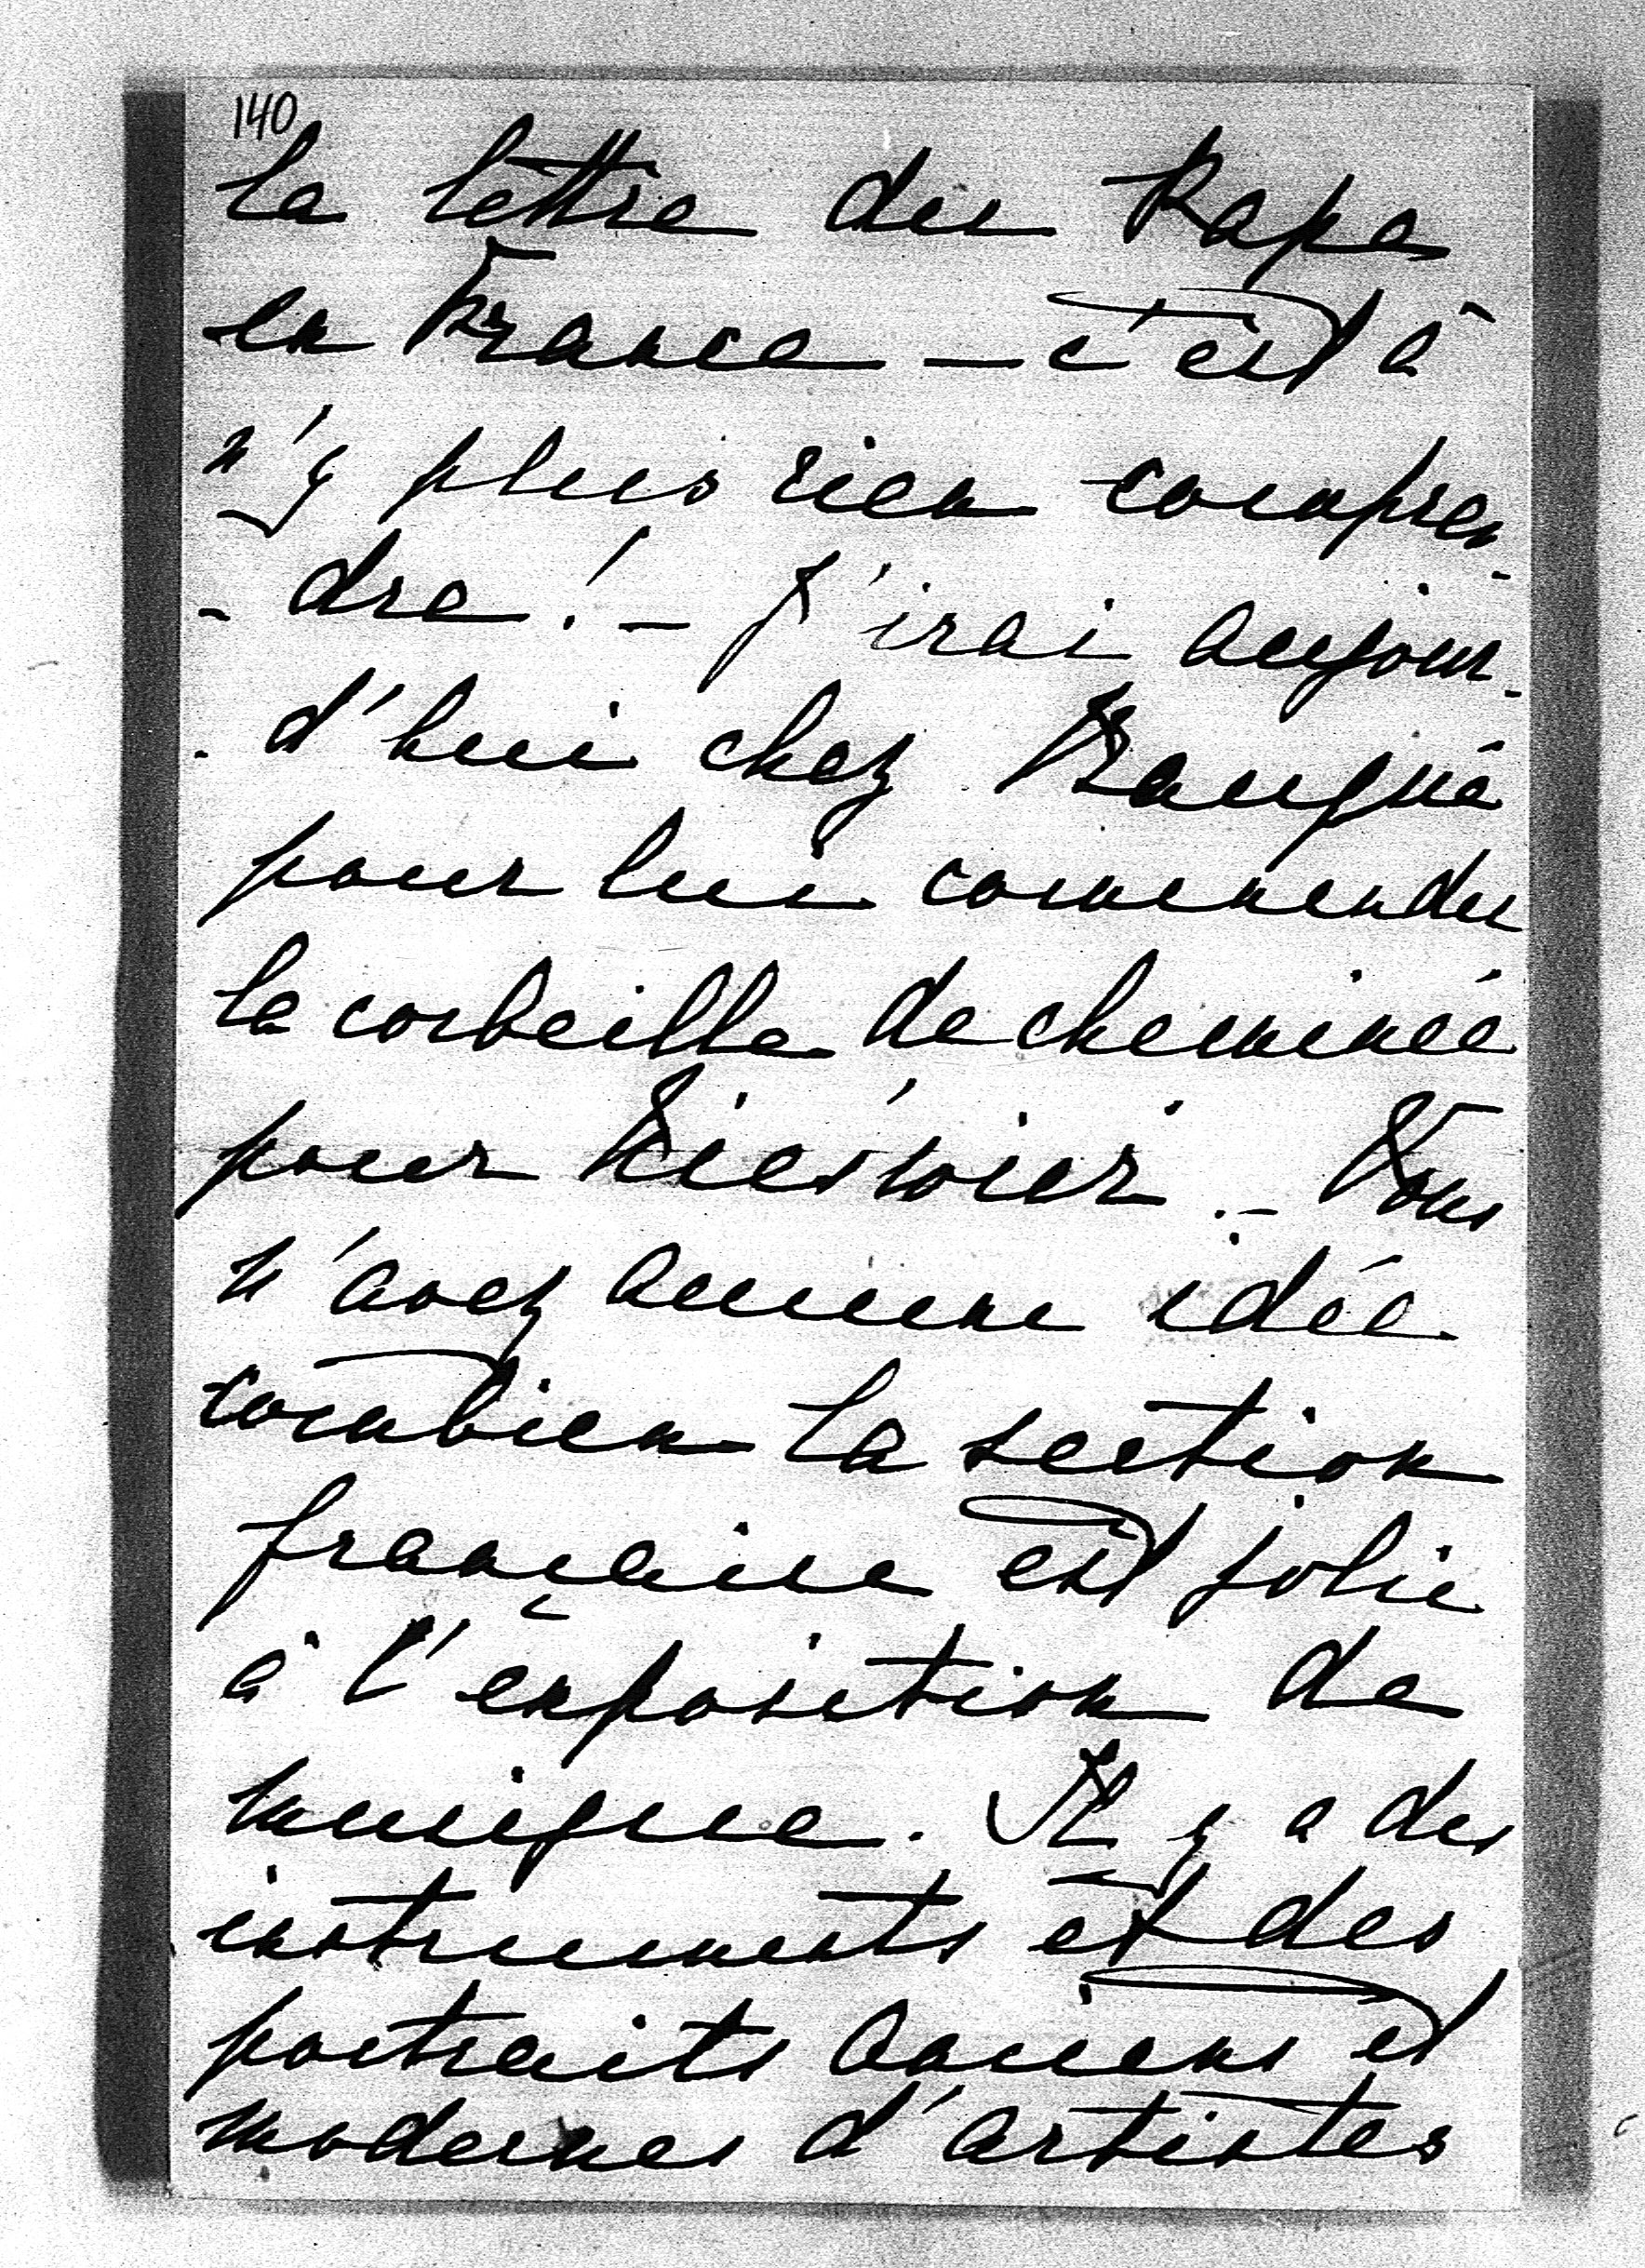 140
la lettre du Pape
en France — c'est à
n'y plus rien compren-
- dre! — J'irai aujour-
- d'hui chez
pour lui commender
la corbeille de cheminée
pour . — Vous
n'avez aucune idée
combien la section
française est jolie
à l'exposition de
musique. Il y a des
instruments et des
portraits anciens et
modernes d'artistes